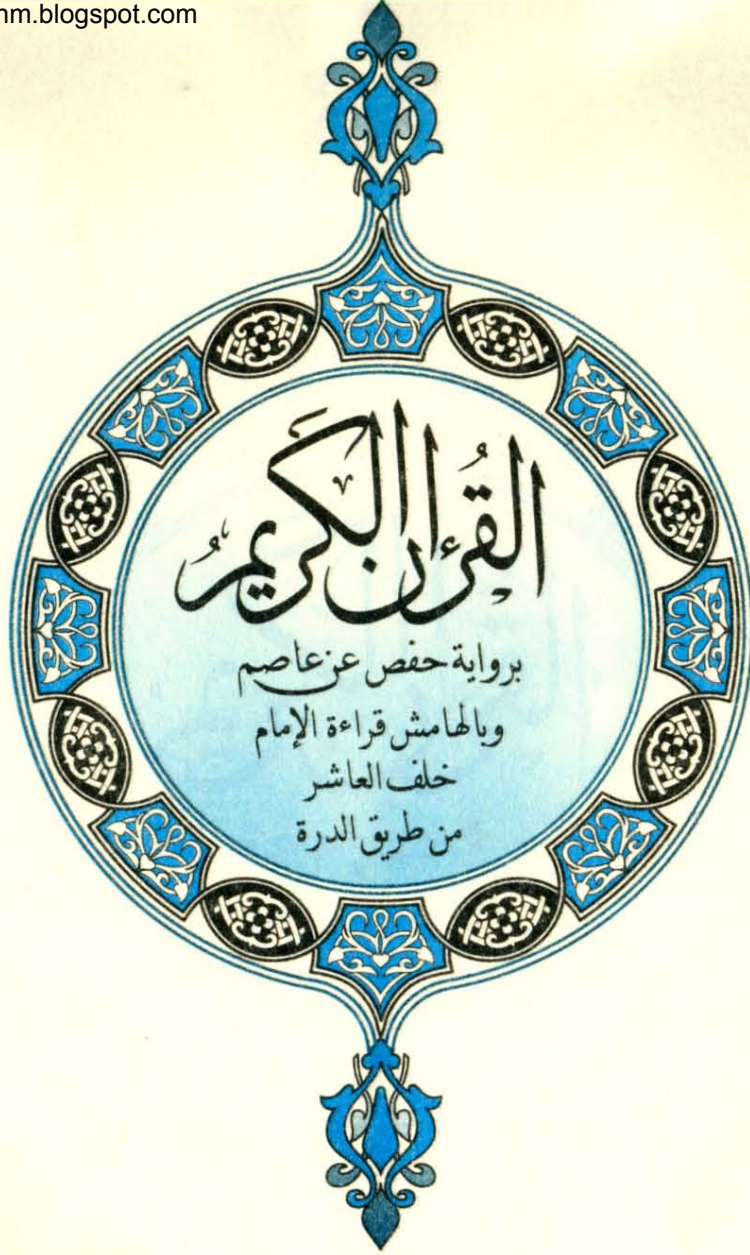 nm.blogspot.com
القرءان الكريم
برواية حفص عن عاصم
وبالهامش قراءة الإمام
خلف العاشر
من طريق الدرة